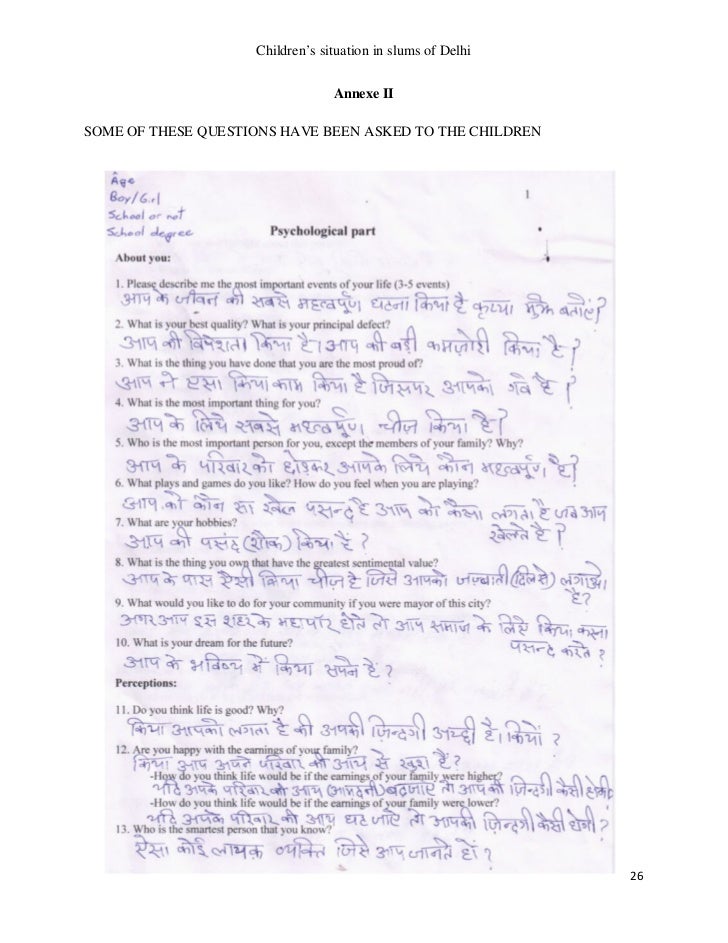 Children's situation in slums of Delhi
Annexe II
SOME OF THESE QUESTIONS HAVE BEEN ASKED TO THE CHILDREN
Âge
Boy/Girl
School or not
School degree
1
Psychological part
About you:
1. Please describe me the most important events of your life (3-5 events)
आप के जीवन की सबसे महत्वपूर्ण घटना किया है कृप्या मुझे बताएं?
2. What is your best quality? What is your principal defect?
आप की विषेशता किया है। आप की बड़ी कमज़ोरी किया है?
3. What is the thing you have done that you are the most proud of?
आप ने एसा किया काम किया है जिसपर आपको गर्व है?
4. What is the most important thing for you?
आप के लिये सबसे महत्वपूर्ण चीज़ किया है?
5. Who is the most important person for you, except the members of your family? Why?
आप के परिवार को छोड़कर आपके लिये कौन महत्वपूर्ण है?
6. What plays and games do you like? How do you feel when you are playing?
आप को कौन सा खेल पसन्द है आप को कैसा लगता है जब आप
खेलते है?
7. What are your hobbies?
आप की पसंद (शौक) किया है?
8. What is the thing you own that have the greatest sentimental value?
आप के पास ऐसी किया चीज़ है जिसे आपका जज़्बाती (दिल से) लगाओ
है?
9. What would you like to do for your community if you were mayor of this city?
अगर आप इस शहर के महापौर होते तो आप समाज के लिए किया करना
पसन्द करते?
10. What is your dream for the future?
आप के भविष्य में किया सपने हैं?
Perceptions:
11. Do you think life is good? Why?
किया आपको लगता है की आपकी ज़िन्दगी अच्छी है। कियों?
12. Are you happy with the earnings of your family?
किया आप अपने परिवार की आय से खुश हैं?
-How do you think life would be if the earnings of your family were higher?
यदि आपके परिवार की आय (आमदनी) बढ़ जाए तो आपकी ज़िन्दगी कैसी होगी
-How do you think life would be if the earnings of your family were lower?
यदि आपके परिवार की आय घट जाऐ तो आपकी ज़िन्दगी कैसी होगी?
13. Who is the smartest person that you know?
ऐसा कोई लायक़ व्यक्ति जिसे आप जानते हों?
26